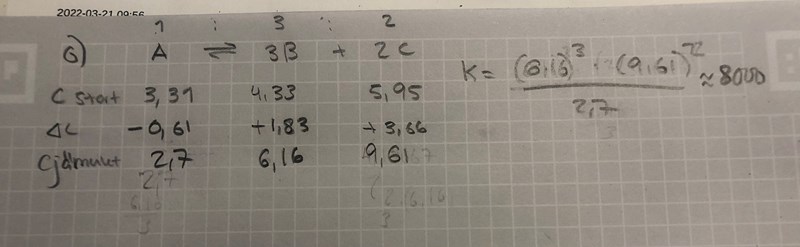 2022-03-21 09:56
1 : 3 : 2
6) A ⇌ 3B + 2C
C start 3,31 4,33 5,95
ΔC -0,61 +1,83 +3,66
Cjämvikt 2,7 6,16 9,61
K = (6,16)³ · (9,61)² / 2,7 ≈ 8000
2,7
3